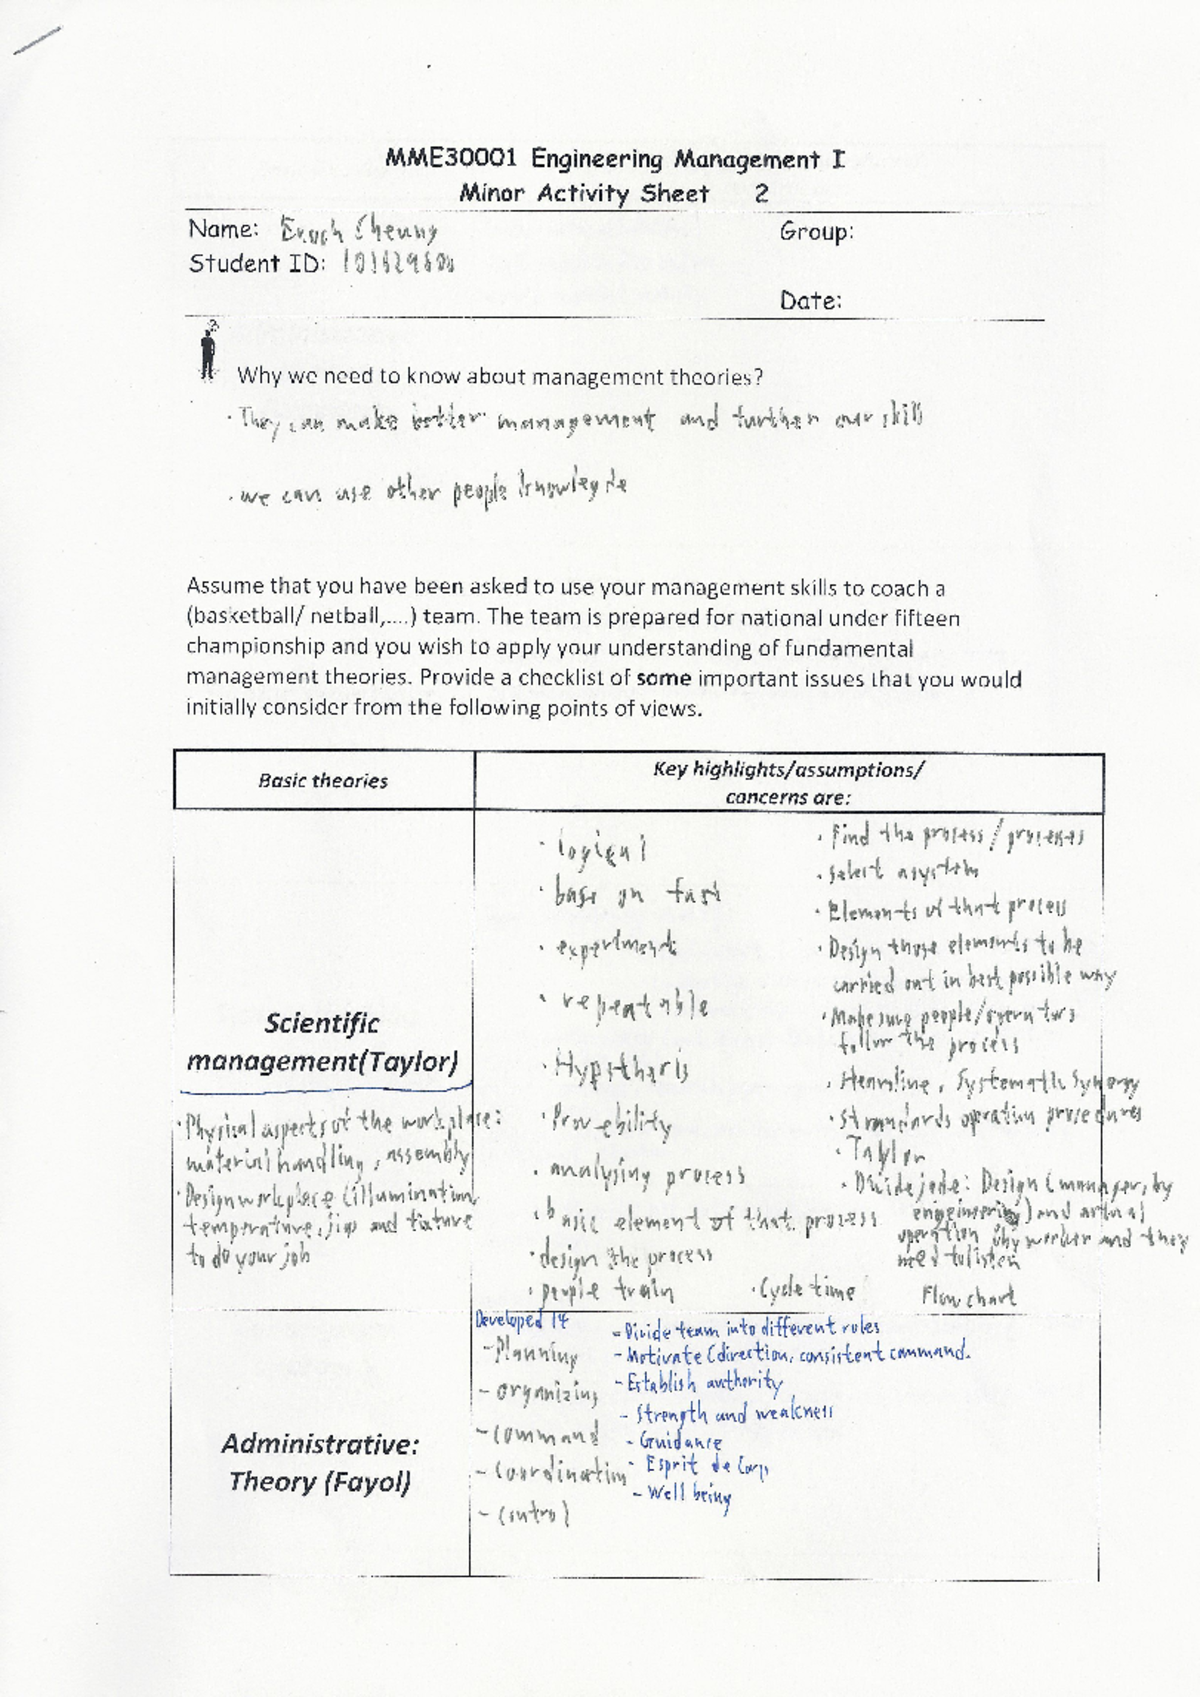 MME30001 Engineering Management I
Minor Activity Sheet 2
Name: Enoch Cheung
Group:
Student ID:
Date:
Why we need to know about management theories?
· They can make better management and further our skill
· we can use other people knowlegde
Assume that you have been asked to use your management skills to coach a
(basketball/ netball,....) team. The team is prepared for national under fifteen
championship and you wish to apply your understanding of fundamental
management theories. Provide a checklist of some important issues that you would
initially consider from the following points of views.
Basic theories
Key highlights/assumptions/
concerns are:
Scientific
management(Taylor)
· Physical aspects of the workplace:
material handling, assembly
· Design workplace (illumination,
temperature, jigs and fixture
to do your job
· logical
· base on fact
· experiment
· repeatable
· Hypothesis
· Provability
· analysing process
· basic element of that process
· design the process
· people train
· Cycle time
· Find the process/processes
· Select a system
· Elements of that process
· Design those elements to be
carried out in best possible way
· Make sure people/operators
follow the process
Systematic Synergy
· Standards operation procedures
· Taylor
Design (manager, by
engineering) and actual
operation by worker and they
need to listen
Flow chart
Administrative:
Theory (Fayol)
Developed 14
- Planning
- organizing
- command
- coordination
- control
- Divide team into different roles
- Motivate (direction, consistent command.
- Establish authority
- Strength and weakness
- Guidance
- Esprit de Corp
- Well being